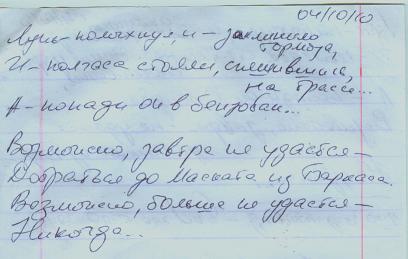 04/10/10
Лучь полыхнул, и - заклинило
тормоза,
И - полчаса стояли, спешившись,
на трассе...
А - попади он в бензобак...
Возможно, завтра не удастся -
Добраться до Маската из Баркаса.
Возможно, больше не удастся -
Никогда...